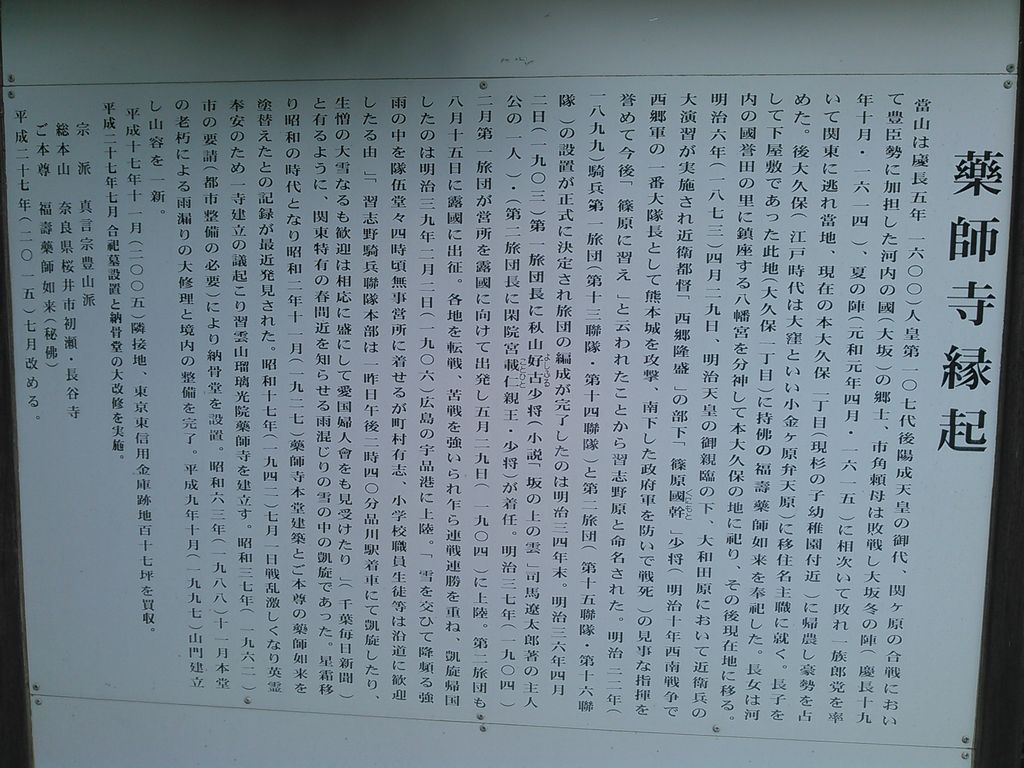 藥師寺縁起
當山は慶長五年（一六〇〇）人皇第一〇七代後陽成天皇の御代、関ヶ原の合戦におい
て豊臣勢に加担した河内の國（大坂）の郷士、市角頼母は敗戦し大坂冬の陣（慶長十九
年十月・一六一四）、夏の陣（元和元年四月・一六一五）に相次いで敗れ一族郎党を率
いて関東に逃れ當地、現在の本大久保一丁目（現杉の子幼稚園付近）に帰農し豪勢を占
めた。後大久保（江戸時代は大窪といい小金ヶ原弁天原）に移住名主職に就く。長子を
して下屋敷であった此地（大久保一丁目）に持佛の福壽藥師如来を奉祀した。長女は河
内の國誉田の里に鎮座する八幡宮を分神して本大久保の地に祀り、その後現在地に移る。
明治六年（一八七三）四月二九日、明治天皇の御親臨の下、大和田原において近衛兵の
大演習が実施され近衛都督「西郷隆盛」の部下「篠原國幹」少将（明治十年西南戦争で
くにもと
西郷軍の一番大隊長として熊本城を攻撃、南下した政府軍を防いで戦死）の見事な指揮を
誉めて今後「篠原に習え」と云われたことから習志野原と命名された。明治三二年（
一八九九）騎兵第一旅団（第十三聯隊・第十四聯隊）と第二旅団（第十五聯隊・第十六聯
隊）の設置が正式に決定され旅団の編成が完了したのは明治三四年末。明治三六年四月
二日（一九〇三）第一旅団長に秋山好古少将（小説「坂の上の雲」司馬遼太郎著の主人
よしふる
公の一人）・（第二旅団長に閑院宮載仁親王・少将が着任。明治三七年（一九〇四）
ことひと
二月第一旅団が営所を露國に向けて出発し五月二九日（一九〇四）に上陸。第二旅団も
八月十五日に露國に出征。各地を転戦、苦戦を強いられ乍ら連戦連勝を重ね、凱旋帰国
したのは明治三九年二月二日（一九〇六）広島の宇品港に上陸。「雪を交ひて降頻る強
雨の中を隊伍堂々四時頃無事営所に着せるが町村有志、小学校職員生徒等は沿道に歓迎
したる由」「習志野騎兵聯隊本部は一昨日午後二時四〇分品川駅着車にて凱旋したり、
生憎の大雪なるも歓迎は相応に盛にして愛国婦人會をも見受けたり」（千葉毎日新聞）
と有るように、関東特有の春間近を知らせる雨混じりの雪の中の凱旋であった。星霜移
り昭和の時代となり昭和二年十一月（一九二七）藥師寺本堂建築とご本尊の藥師如来を
塗替えたとの記録が最近発見された。昭和十七年（一九四二）七月一日戦乱激しくなり英霊
奉安のため一寺建立の議起こり習雲山瑠璃光院藥師寺を建立す。昭和三七年（一九六二）
市の要請（都市整備の必要）により納骨堂を設置。昭和六三年（一九八八）十一月本堂
の老朽による雨漏りの大修理と境内の整備を完了。平成九年十月（一九九七）山門建立
し山容を一新。
平成十七年十一月（二〇〇五）隣接地、東京東信用金庫跡地百十七坪を買収。
平成二十七年七月合祀墓設置と納骨堂の大改修を実施。
宗　派　真言宗豊山派
総本山　奈良県桜井市初瀬・長谷寺
ご本尊　福壽藥師如来（秘佛）
平成二十七年（二〇一五）七月改める。